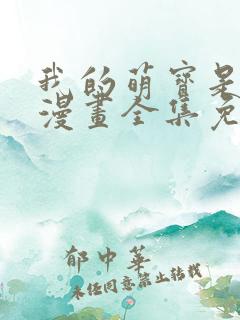 我的萌寶是
漫畫全集免
郁中華
未经同意禁止转载